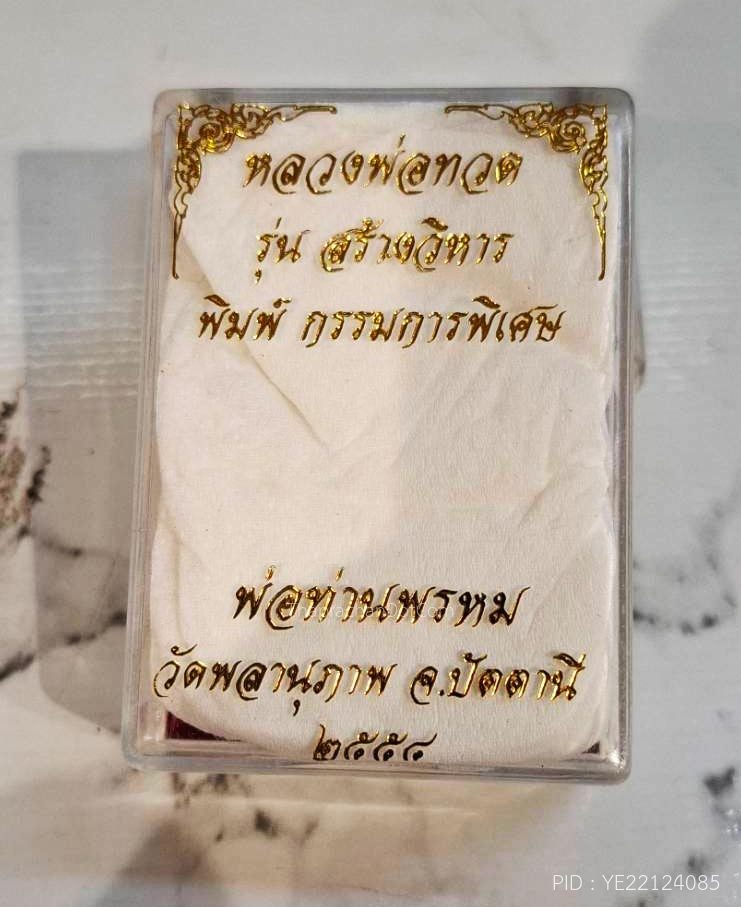 หลวงพ่อทวด
รุ่น สร้างวิหาร
พิมพ์ กรรมการพิเศษ
พ่อท่านพรหม
วัดพลานุภาพ จ.ปัตตานี
๒๕๕๔
PID : YE22124085